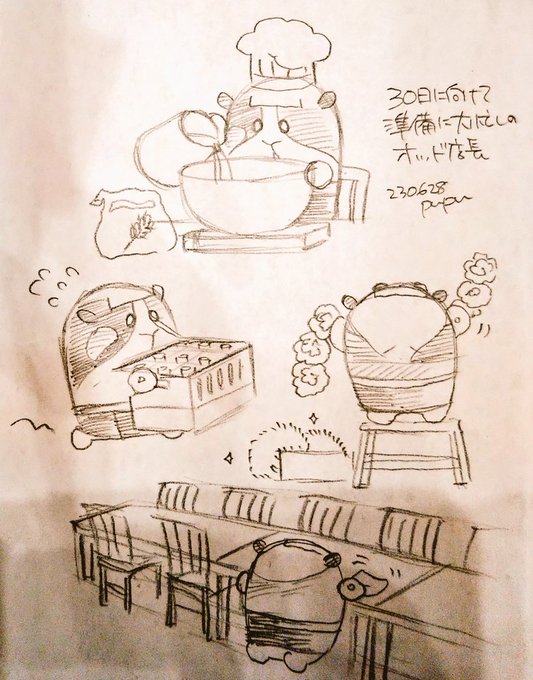 30日に向けて
準備に大忙しの
オッド店長
230628
pupu